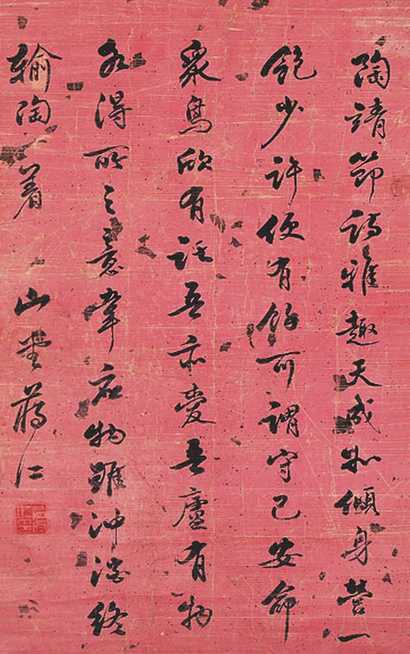 陶靖節詩雅趣天成如傾身營一
飽少許便有餘可謂守己安命
衆鳥欣有託吾亦愛吾廬有物
各得所之意韋應物雖沖澹終
輸陶一着 山堂蔣仁